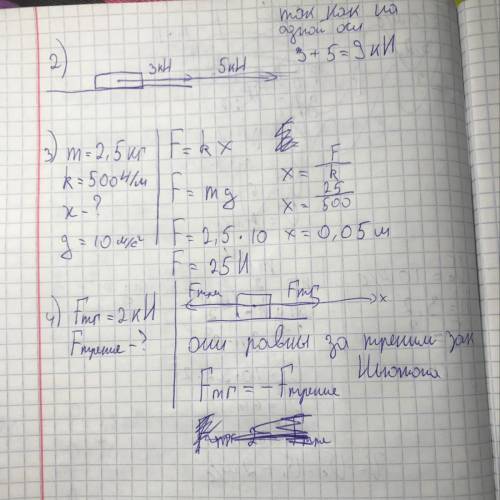 так как на
одной оси
3 + 5 = 9 кН
2)
3кН 5кН
3) m = 2,5 кг
k = 500 Н/м
x - ?
g = 10 м/с²
F = k x
F = mg
F = 2,5 · 10
F = 25 Н
x = F/k
x = 25/500
x = 0,05 м
4) Fтг = 2 кН
Fтрение - ?
Fтрен Fтг x
они равны за третим зак
Ньютона
Fтг = - Fтрение